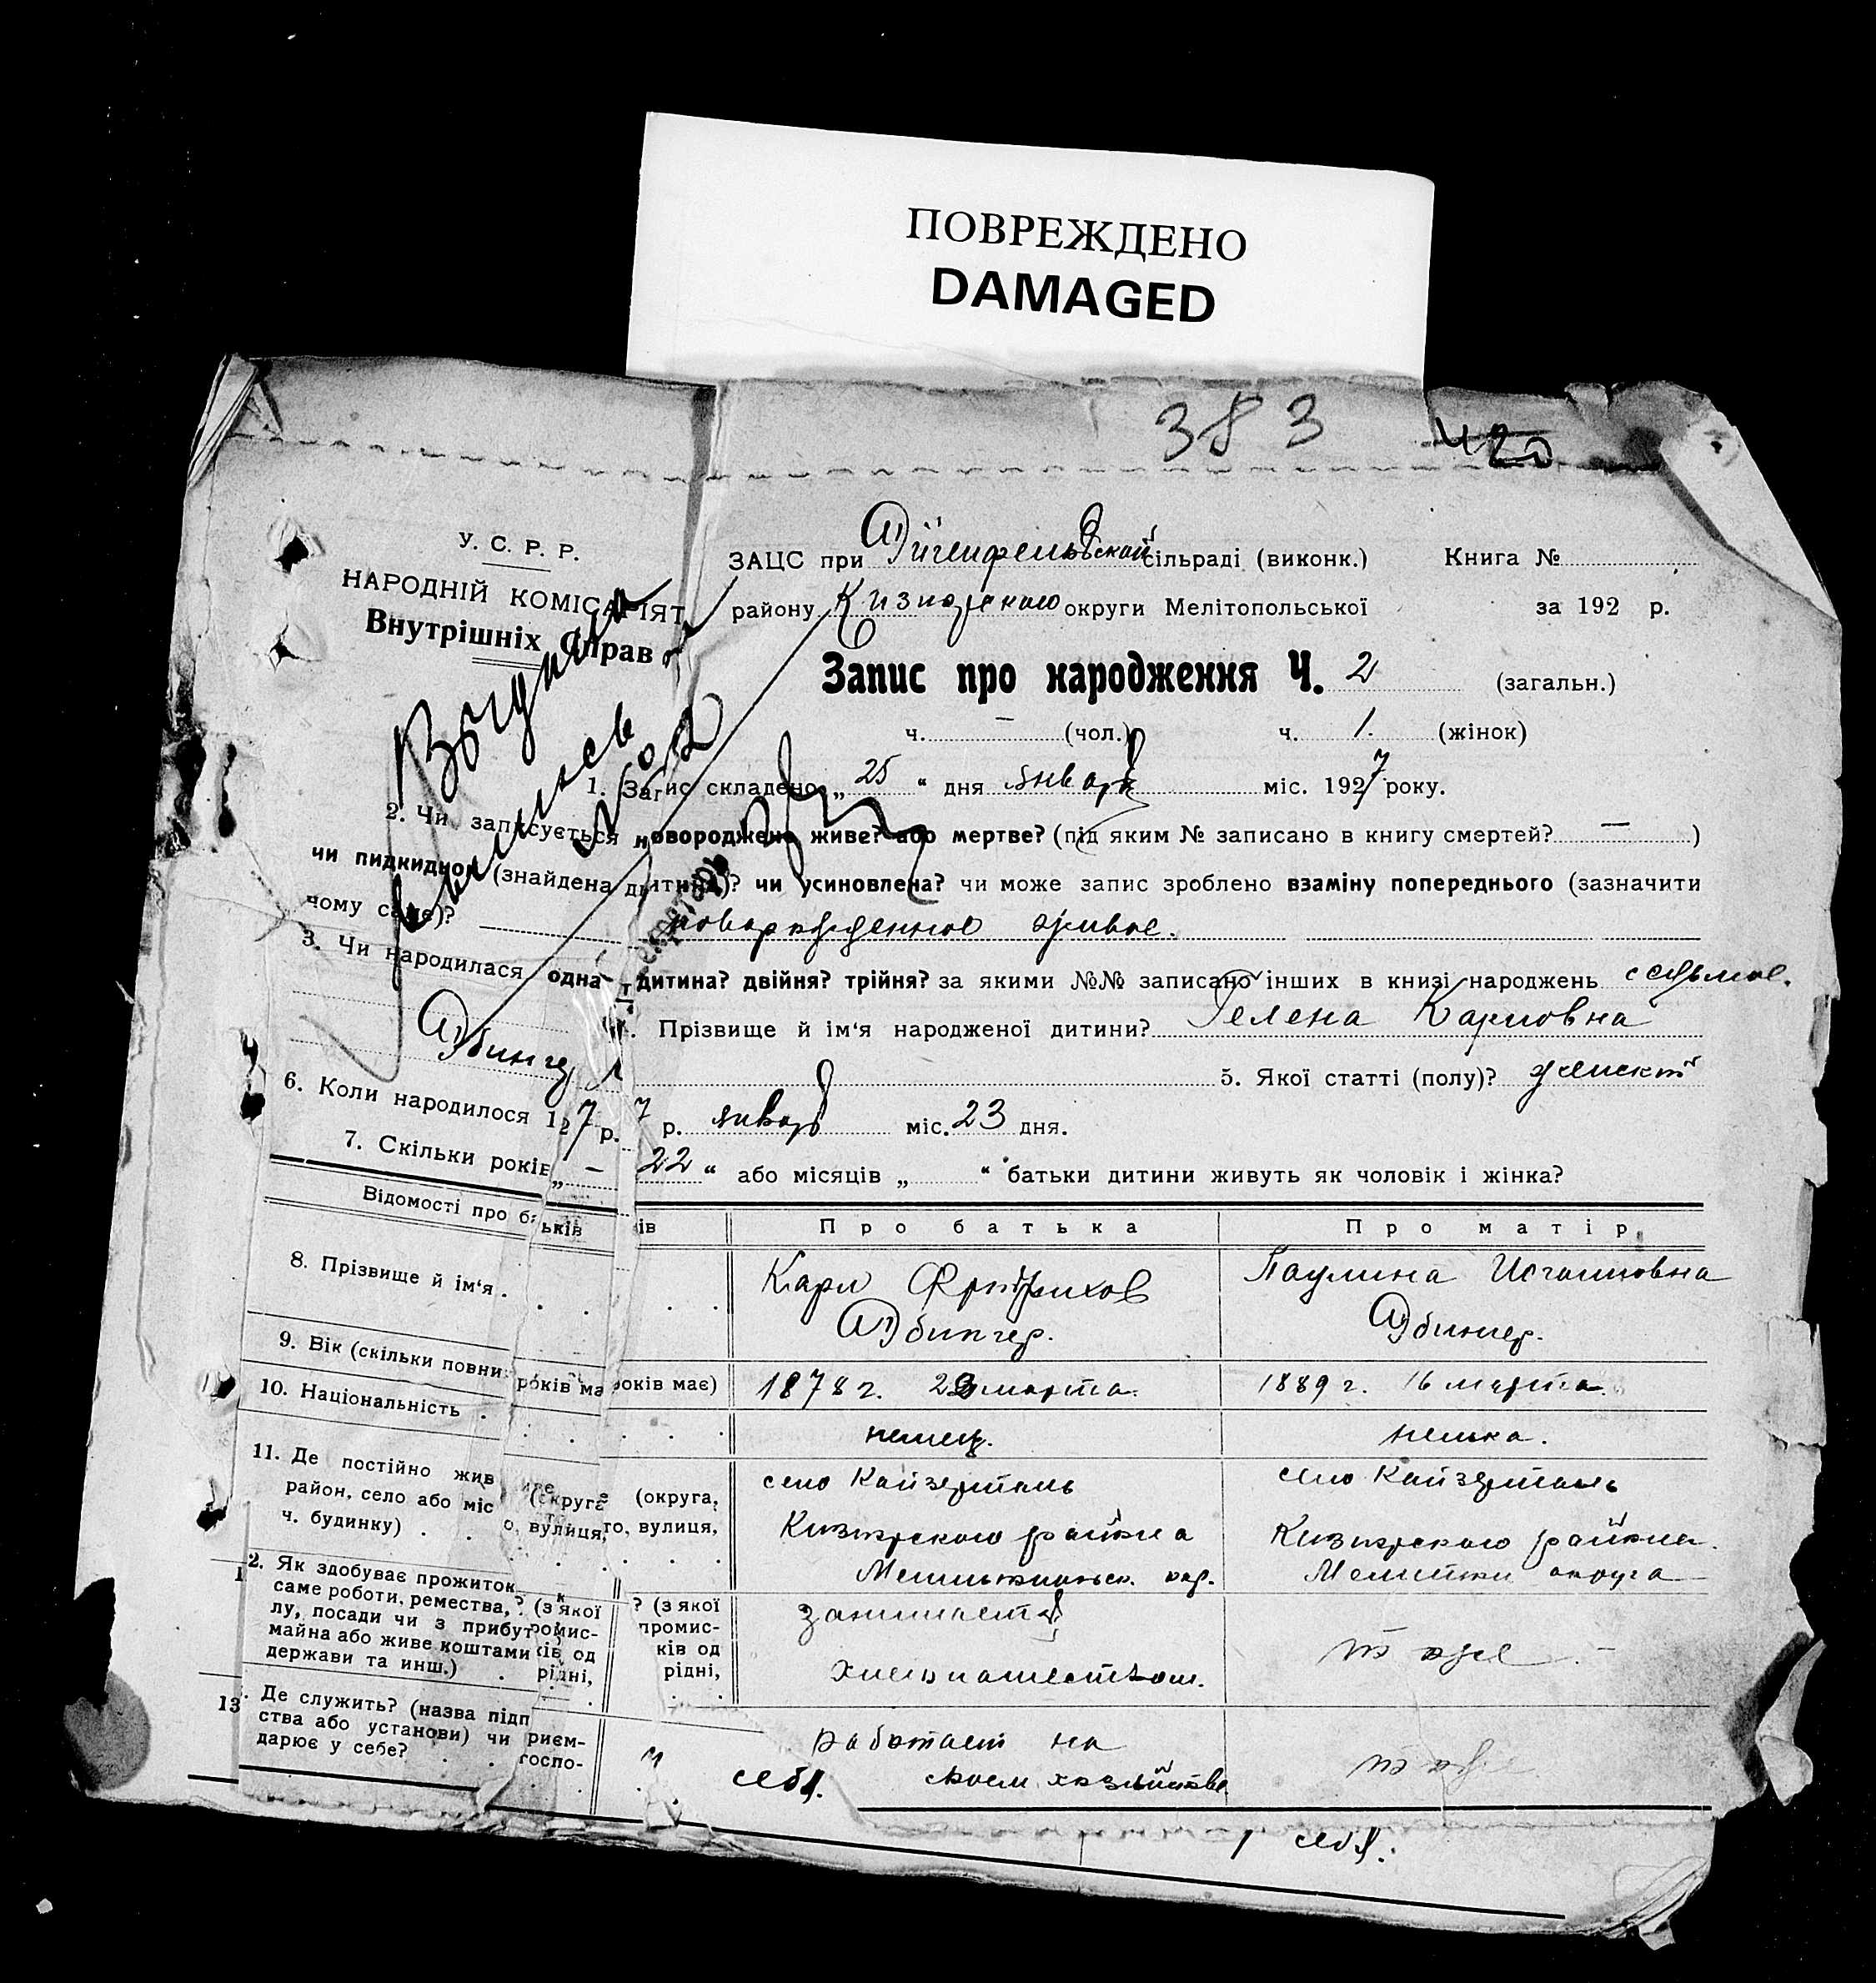 ПОВРЕЖДЕНО
DAMAGED
383
420
У. С. Р. Р.
НАРОДНІЙ КОМІСАРІЯТ
Внутрішніх Справ
ЗАЦС при сільраді (виконк.) Книга №
району Кизиярского округи Мелітопольської за 192 р.
Запис про народження Ч. 2 (загальн.)
ч. — (чол.) ч. 1. (жінок)
1. Запис складено „ 25 “ дня января міс. 1927 року.
2. Чи записується новороджене живе? або мертве? (під яким № записано в книгу смертей? — )
чи пидкидьок (знайдена дитина)? чи усиновлена? чи може запис зроблено взаміну попереднього (зазначити
чому саме)? новорожденное живое.
3. Чи народилася одна дитина? двійня? трійня? за якими №№ записано інших в книзі народжень седьмое.
4. Прізвище й ім‘я народженої дитини? Гелена Карловна
Эбингер 5. Якої статті (полу)? женский
6. Коли народилося 1927 р. январь міс. 23 дня.
7. Скільки років „ 22 “ або місяців „ “ батьки дитини живуть як чоловік і жінка?
Відомості про батьків Про батька Про матір
8. Прізвище й ім‘я . . . . Карл Фридрихов Паулина
Эбингер. Эбингер.
9. Вік (скільки повних років має) 1878 г. марта. 1889 г. 16 марта.
10. Національність . . . . . немец. немка.
11. Де постійно живе (округа, село Кайзерталь село Кайзерталь
район, село або місто, вулиця, Кизиярского района Кизиярского района.
ч. будинку) . . . . . Мелитопольск. окр. округа
12. Як здобуває прожиток? (з якої занимается то же
саме роботи, ремества, промис-
лу, посади чи з прибутків од хлебопашеством.
майна або живе коштами рідні,
держави та инш.) . . . .
13. Де служить? (назва підприєм- работает на то же
ства або установи) чи госпо- своем хозяйстве
дарює у себе? . . . . себя.
себя.
Секретарь